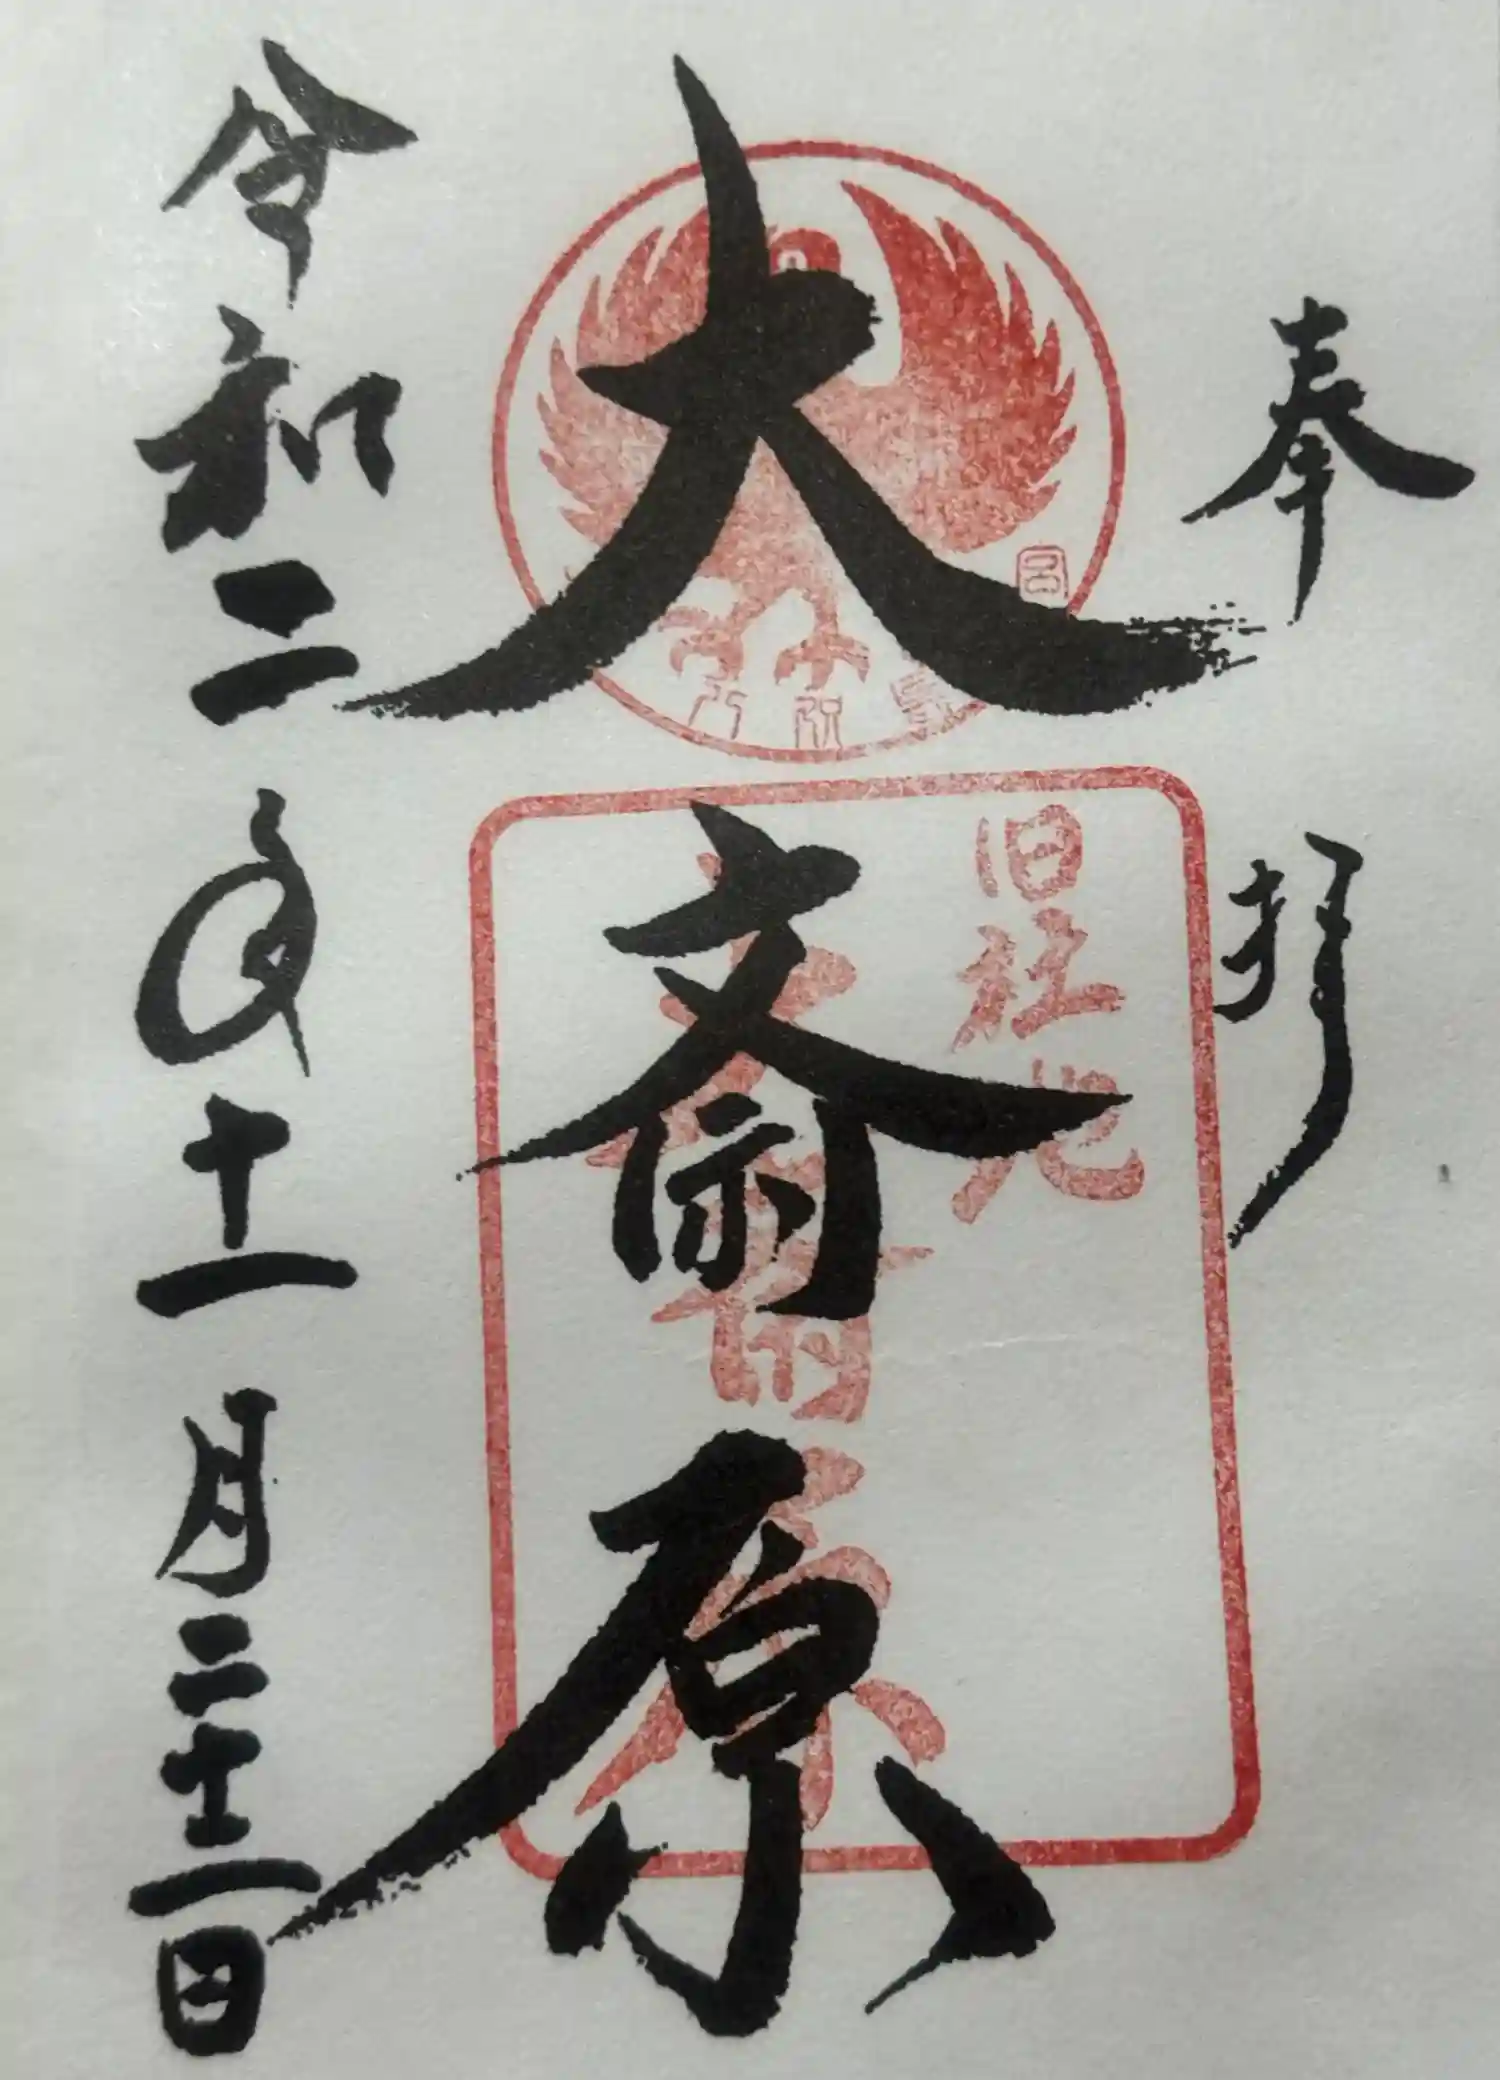 奉拝
大斎原
旧社地
大斎原
令和二年十一月二十一日